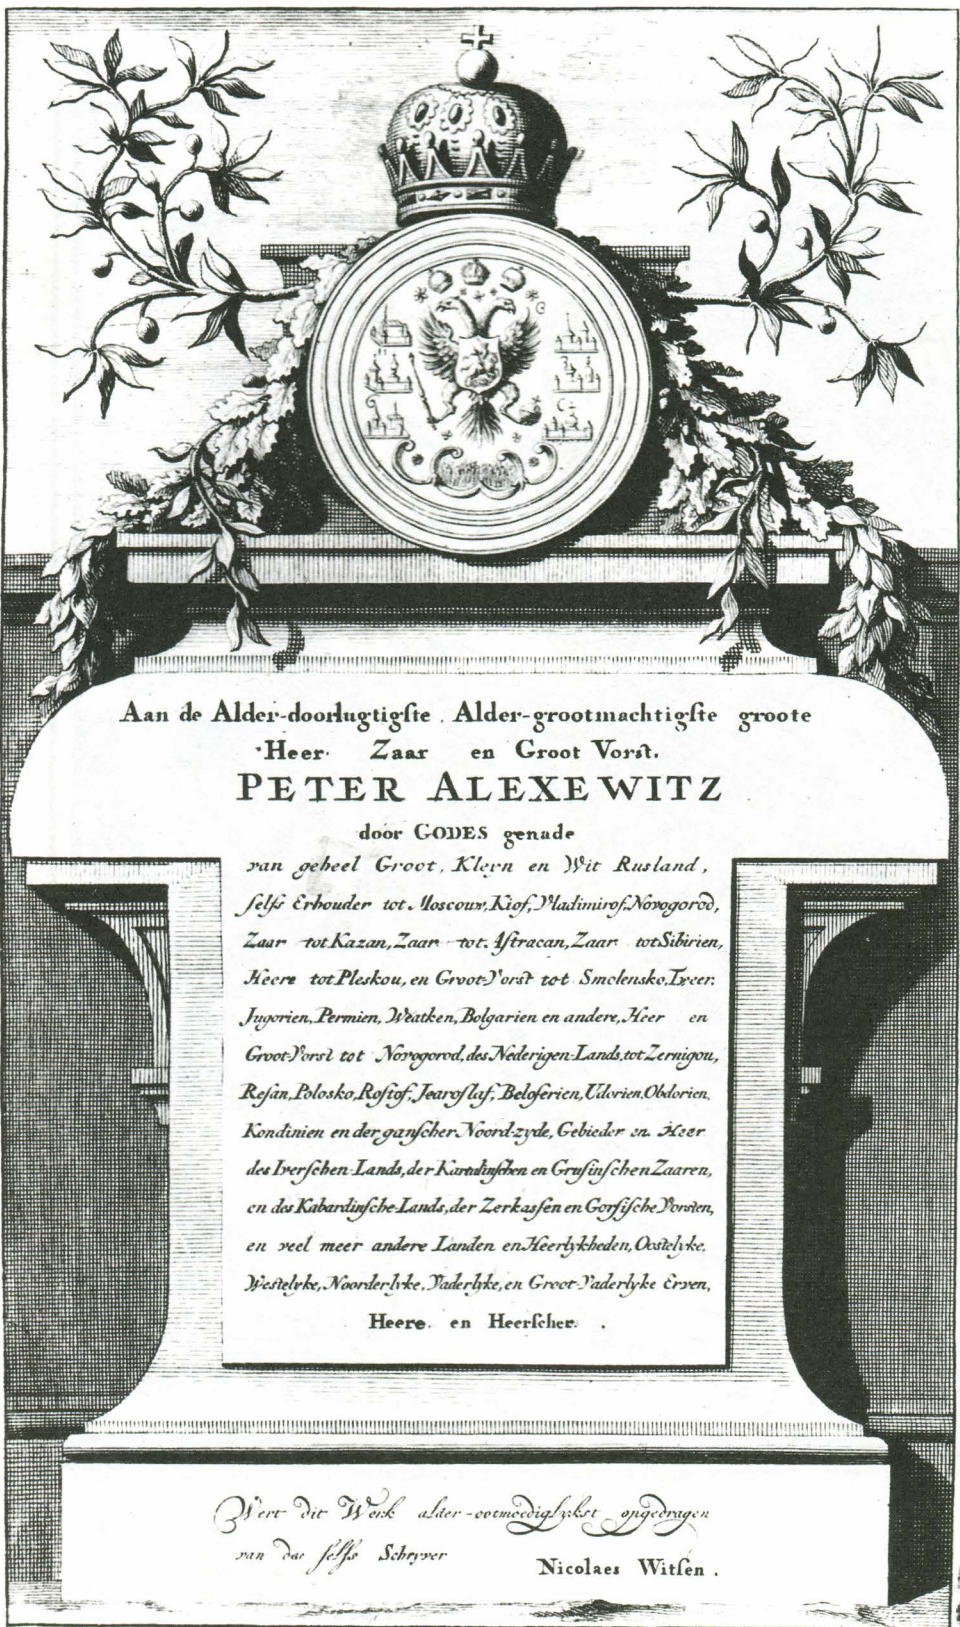 Aan de Alder-doorlugtigſte. Alder-grootmachtigſte groote
Heer Zaar en Groot Vorst.
PETER ALEXEWITZ
door GODES genade
van geheel Groot, Kleyn en Wit Rusland,
ſelfs Erhouder tot Moscouw, Kiof, Vladimirof, Novogorod,
Zaar tot Kazan, Zaar tot Aſtracan, Zaar tot Sibirien,
Heere tot Pleskou, en Groot-Vorst tot Smolensko, Tweer,
Jugorien, Permien, Weatken, Bolgarien en andere, Heer en
Groot-Vorst tot Novogorod, des Nederigen-Lands, tot Zernigou,
Reſan, Polosko, Roſtof, Jearoſlaf, Beloſerien, Udorien, Obdorien,
Kondinien en der ganſcher Noord-zyde, Gebieder en Heer
des Iverſchen-Lands, der Kartalinſchen en Gruſinſchen Zaaren,
en des Kabardinſche-Lands, der Zerkaſſen en Gorſiſche Vorsten,
en veel meer andere Landen en Heerlykheden, Oostelyke,
Westelyke, Noorderlyke, Vaderlyke, en Groot-Vaderlyke Erven,
Heere en Heerſcher.
Wert dit Werk alder-ootmoediglykst opgedragen
van des ſelfs Schryver Nicolaes Witſen.